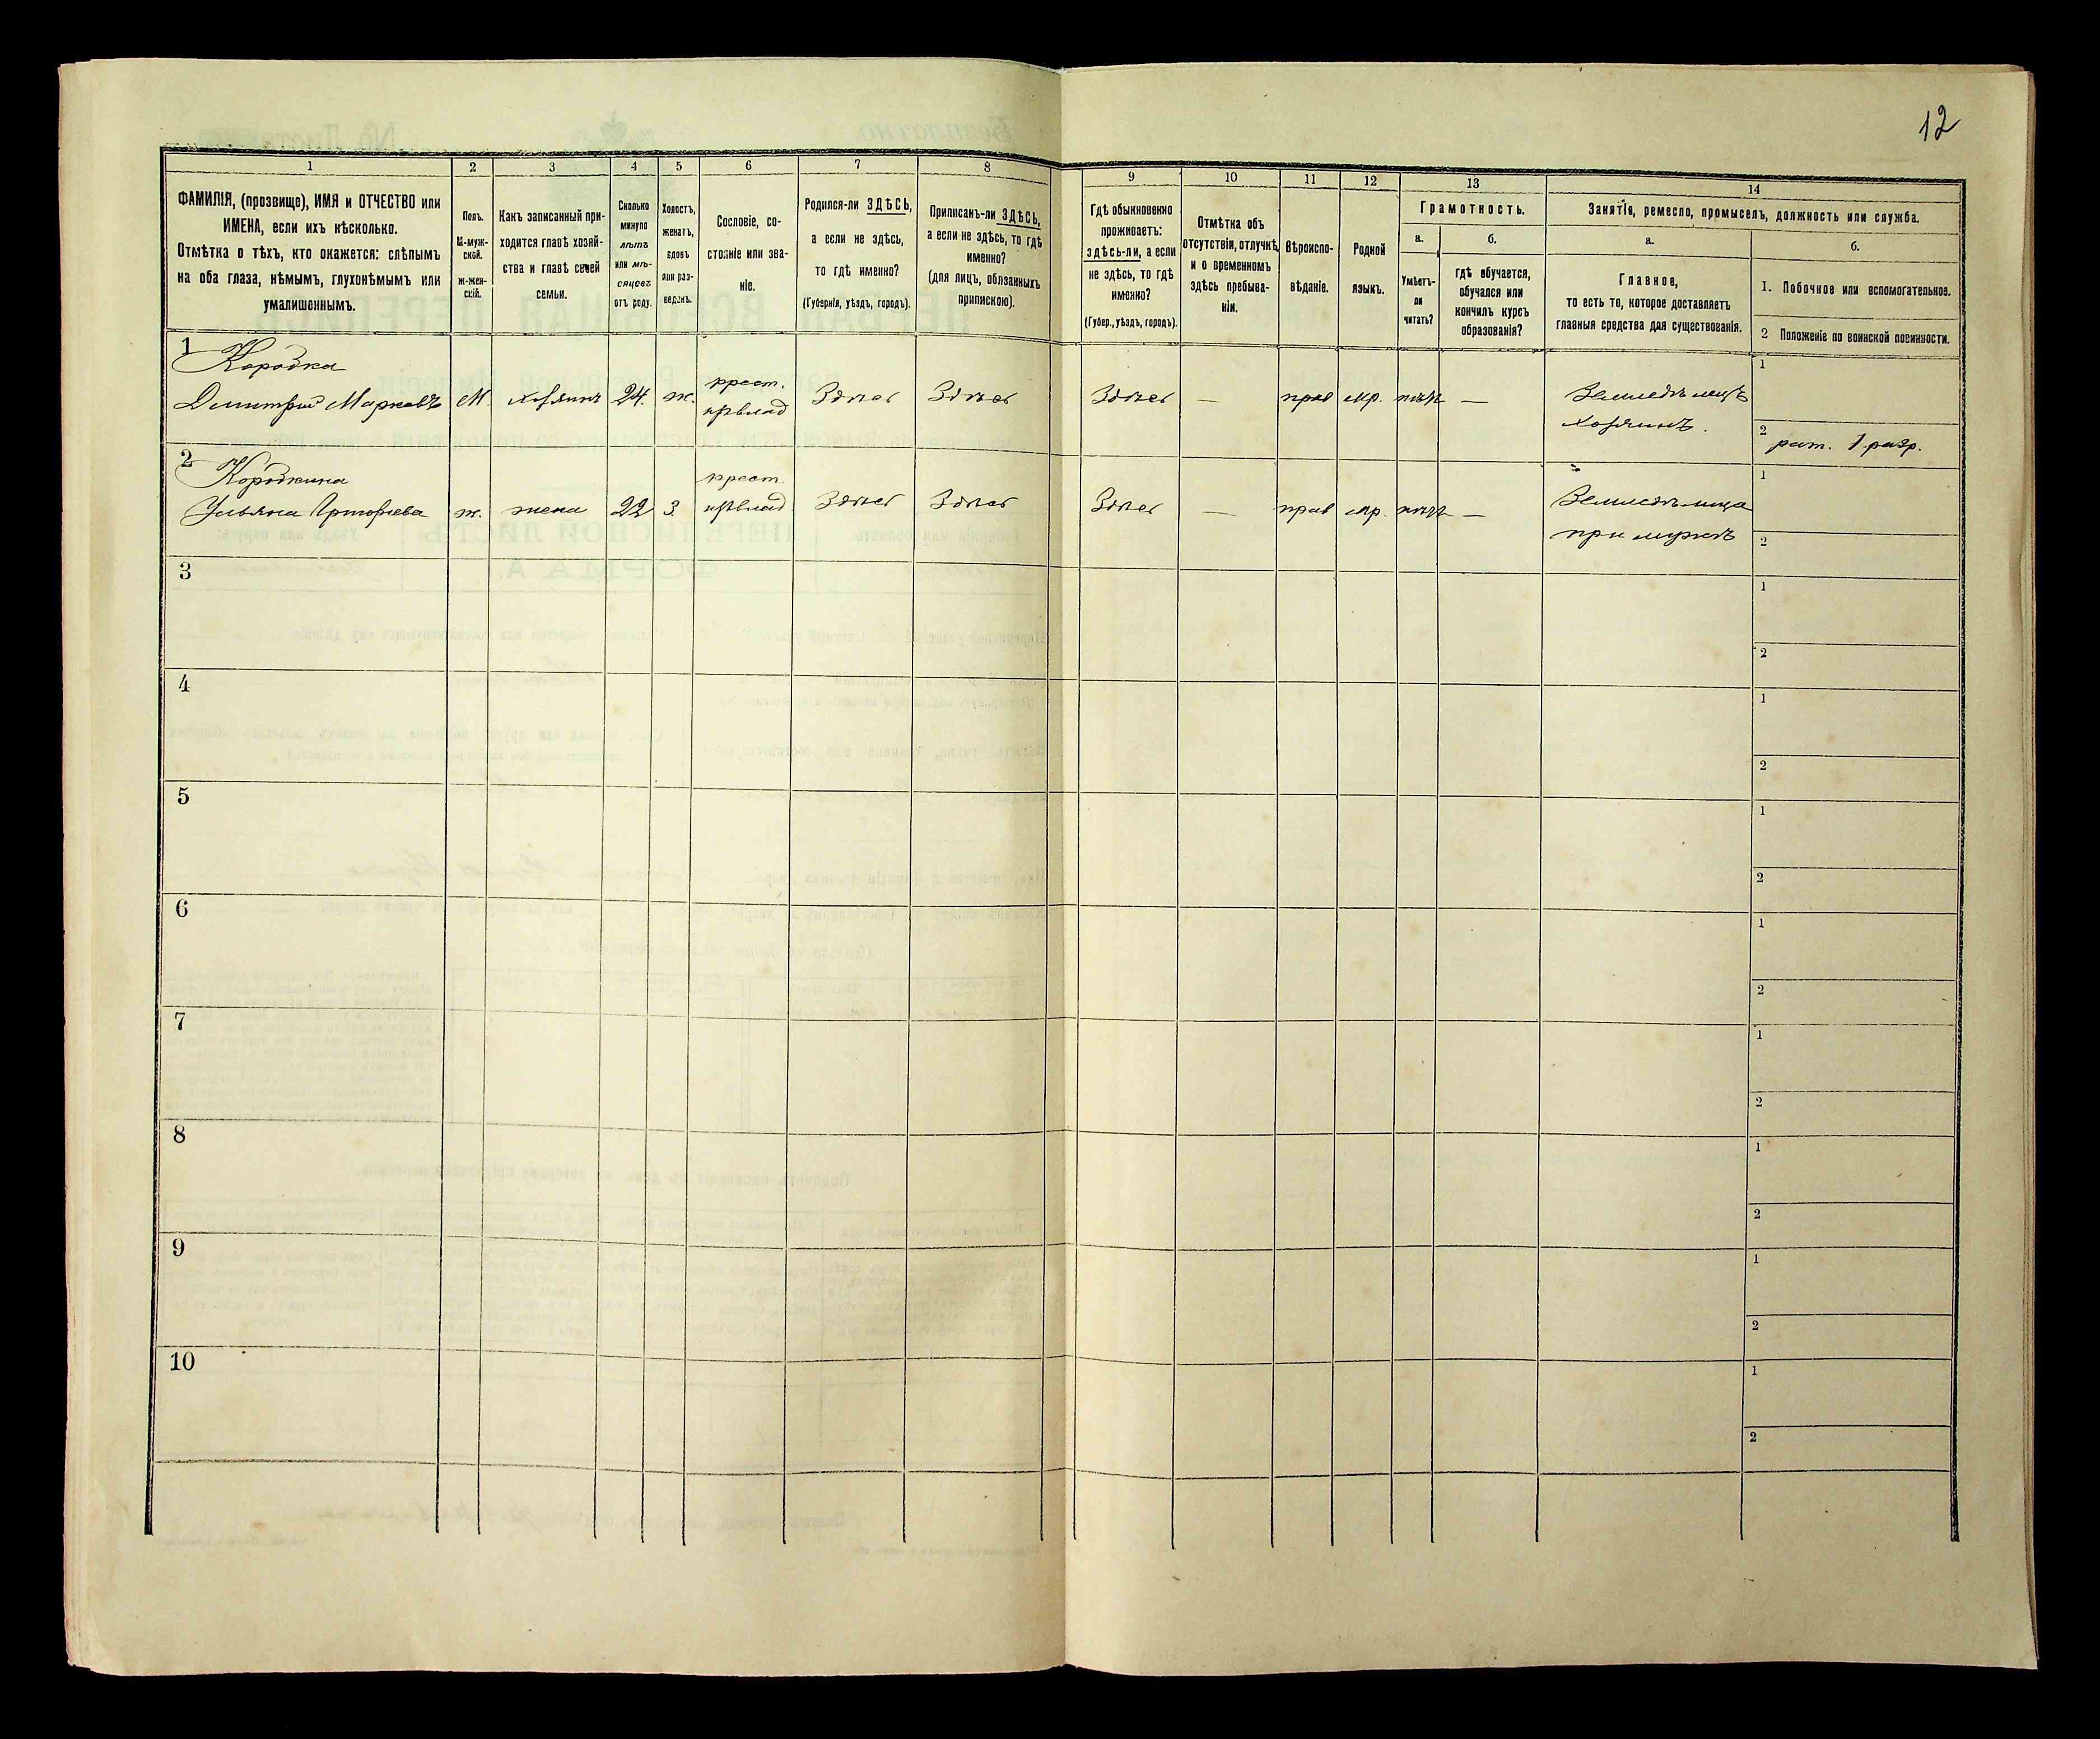 12
1
2
3
4
5
6
7
8
9
10
11
12
13
14
ФАМИЛІЯ, (прозвище), ИМЯ и ОТЧЕСТВО или
ИМЕНА, если ихъ нѣсколько.
Отмѣтка о тѣхъ, кто окажется: слѣпымъ
на оба глаза, нѣмымъ, глухонѣмымъ или
умалишоннымъ.
Полъ.
М-муж-
ской.
ж-жен-
скій.
Какъ записанный при-
ходится главѣ хозяй-
ства и главѣ своей
семьи.
Сколько
минуло
лѣтъ
или мѣ-
сяцевъ
отъ роду.
Холостъ,
женатъ,
вдовъ
или раз-
веденъ.
Сословіе, со-
стояніе или зва-
ніе.
Родился-ли ЗДѢСЬ,
а если не здѣсь,
то гдѣ именно?
(Губернія, уѣздъ, городъ).
Приписанъ-ли ЗДѢСЬ,
а если не здѣсь, то гдѣ
именно?
(для лицъ, обязанныхъ
припискою).
Гдѣ обыкновенно
проживаетъ:
здѣсь-ли, а если
не здѣсь, то гдѣ
именно?
(Губер., уѣздъ, городъ).
Отмѣтка объ
отсутствіи, отлучкѣ
и о временномъ
здѣсь пребыва-
ніи.
Вѣроиспо-
вѣданіе.
Родной
языкъ.
Грамотность.
а.
Умѣетъ-
ли
читать?
б.
гдѣ обучается,
обучался или
кончилъ курсъ
образованія?
Занятіе, ремесло, промыселъ, должность или служба.
а.
Главное,
то есть то, которое доставляетъ
главныя средства для существованія.
б.
1. Побочное или вспомогательное.
2 Положеніе по воинской повинности.
1
Коробка
Дмитрій Марковъ М. хозяинъ 24. ж. крест. Здѣсь Здѣсь Здѣсь — прав мр. нѣтъ — Земледѣлецъ
хозяинъ.
1
2 рат. 1 разр.
2
Коробкина
Ульяна Григорьева ж. жена 22 З крест. Здѣсь Здѣсь Здѣсь — прав мр. нѣтъ — Земледѣлица
при мужѣ
1
2
3
1
2
4
1
2
5
1
2
6
1
2
7
1
2
8
1
2
9
1
2
10
1
2